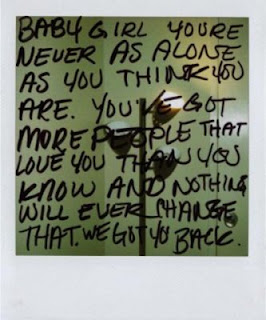 BABY GIRL YOU'RE
NEVER AS ALONE
AS YOU THINK YOU
ARE. YOU'VE GOT
MORE PEOPLE THAT
LOVE YOU THAN YOU
KNOW AND NOTHING
WILL EVER CHANGE
THAT. WE GOT YO BACK.